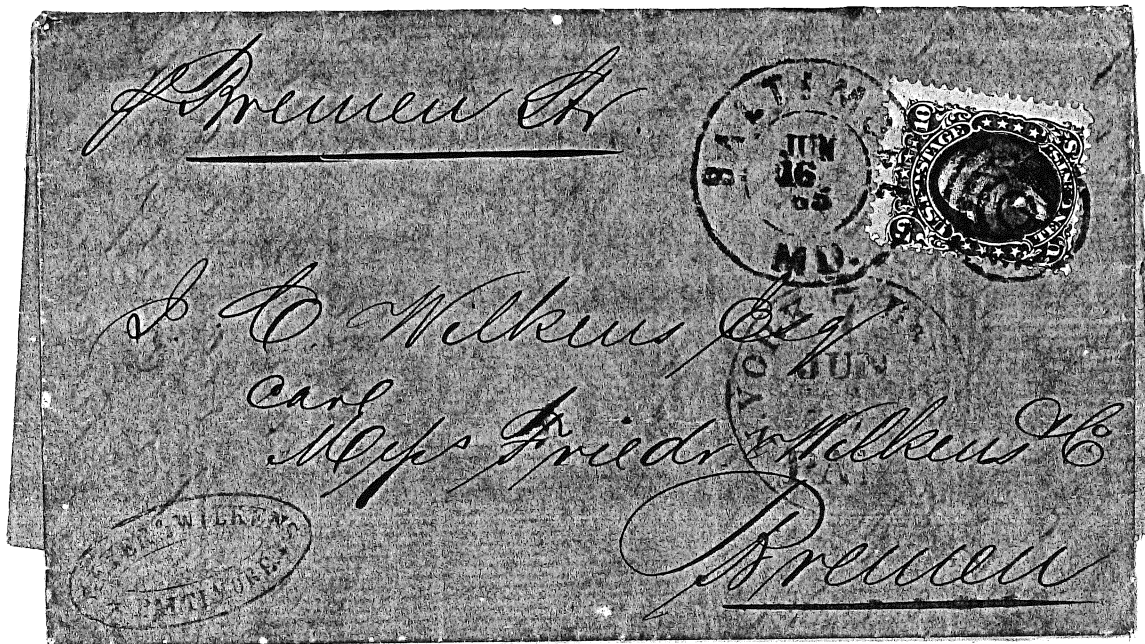 p Bremen Str
BALTIMO
JUN
16
65
MD.
U.S. POSTAGE
TEN CENTS
10
YORK
JUN
J. C. Wilkens Esq
care
Mess Friedr Wilkens & C
Bremen
WILKENS
BALTIMORE